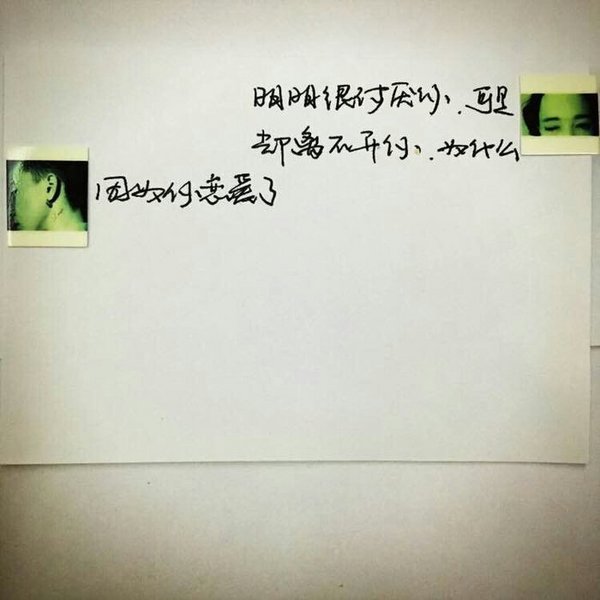 明明很讨厌你、可是
却离不开你、为什么
因为你恋爱了